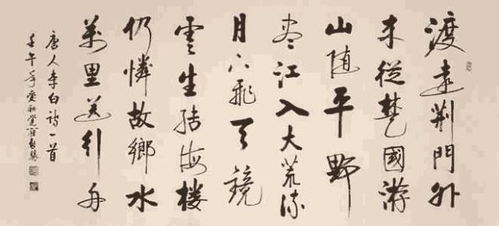 渡遠荆門外
来從楚國游
山随平野
尽江入大荒流
月下飛天鏡
雲生結海樓
仍憐故鄉水
萬里送行舟
唐人李白诗一首
壬午年